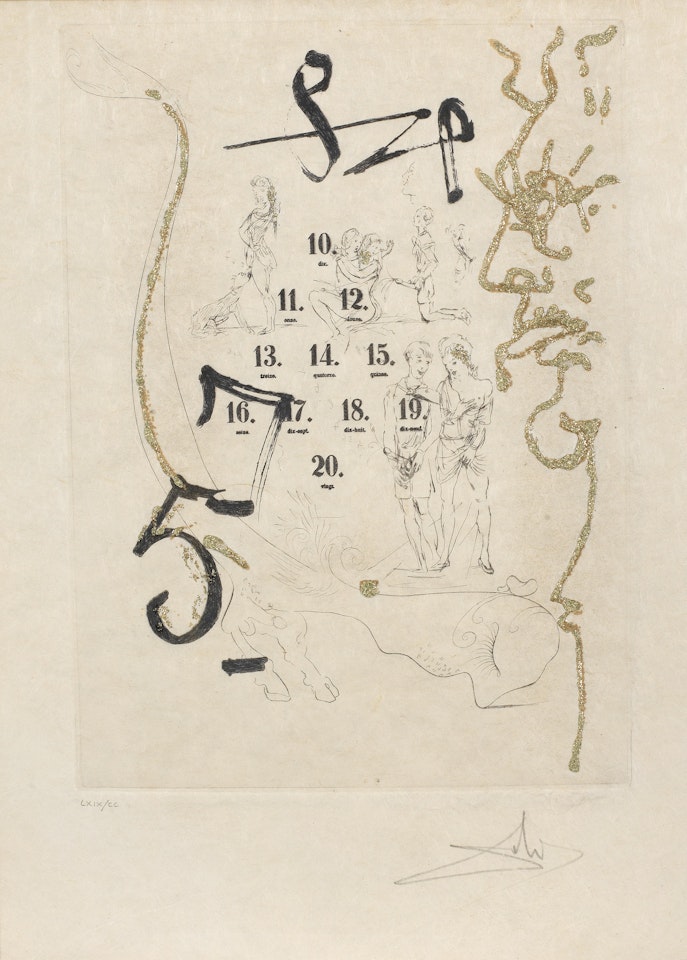 10.
dix.
11. 12.
onze. douze.
13. 14. 15.
treize. quatorze. quinze.
16. 17. 18. 19.
seize. dix-sept. dix-huit. dix-neuf.
20.
vingt.
7
5
LXIX/CC
Dalí